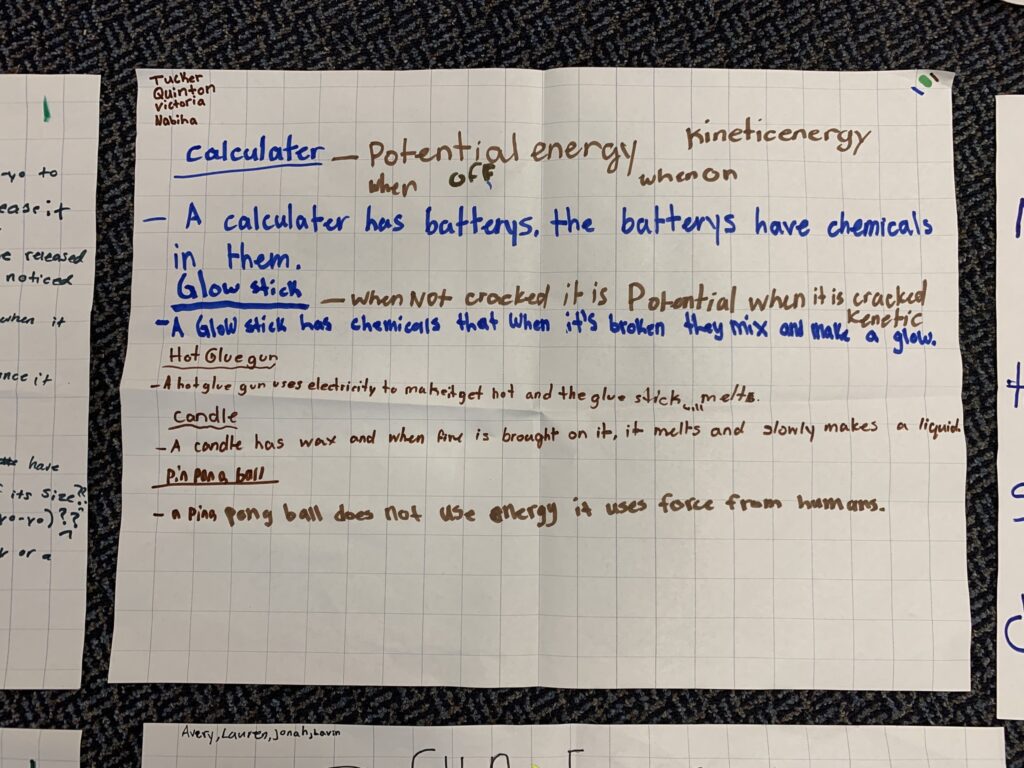 Tucker
Quinton
Victoria
Nabiha
calculater — Potential energy kineticenergy
when off when on
— A calculater has batterys. the batterys have chemicals
in them.
Glow stick — when Not cracked it is Potential when it is cracked
kenetic
- A Glow stick has chemicals that when it's broken they mix and make a glow.
Hot Glue gun
- A hot glue gun uses electricity to make it get hot and the glue stick will melts.
Candle
- A candle has wax and when fire is brought on it, it melts and slowly makes a liquid.
Pin pong ball
- a Ping pong ball does not use energy it uses force from humans.
-yo to
ease it
e released
noticed
when it
nce it
have
its size??
yo-yo)??
or a
Avery, Lauren, Jonah, Lavin